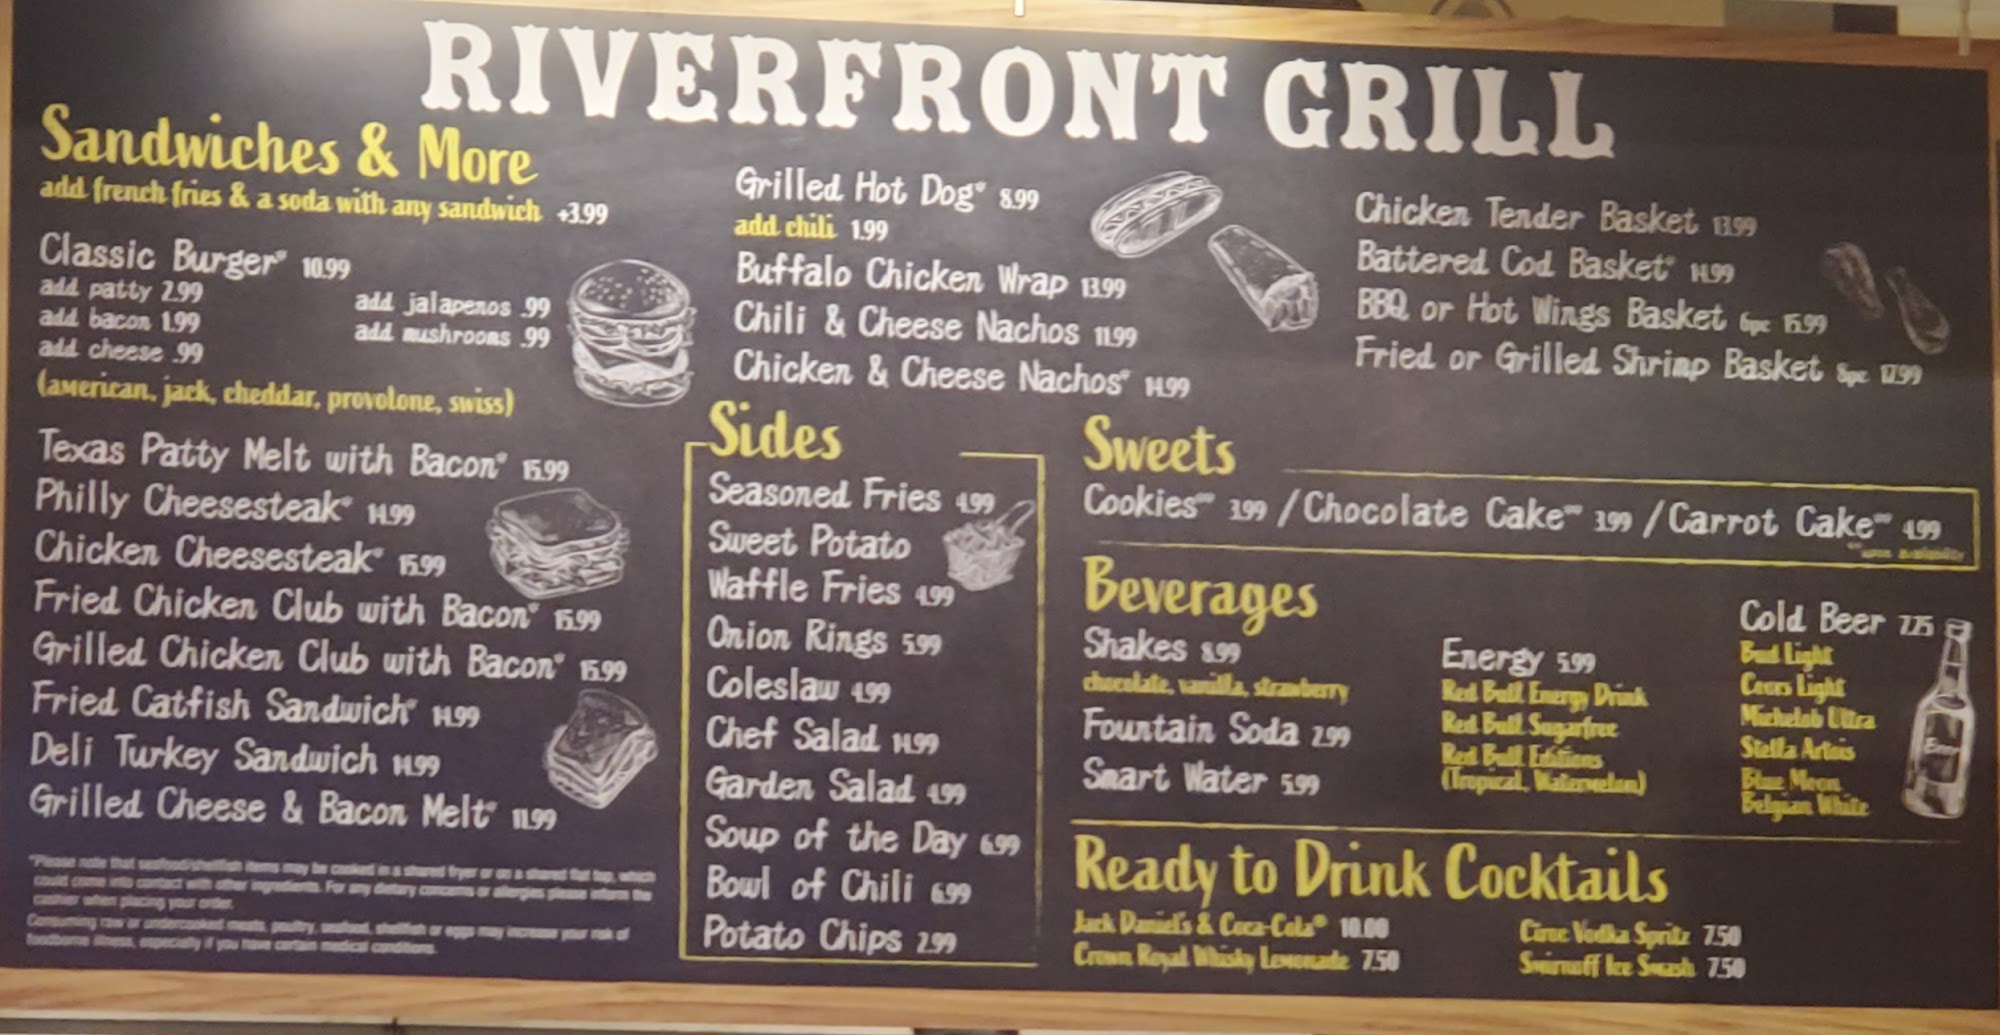 RIVERFRONT GRILL
Sandwiches & More
add french fries & a soda with any sandwich +3.99
Classic Burger* 10.99
add patty 2.99
add bacon 1.99
add cheese .99
add jalapenos .99
add mushrooms .99
(american, jack, cheddar, provolone, swiss)
Texas Patty Melt with Bacon* 15.99
Philly Cheesesteak* 14.99
Chicken Cheesesteak* 15.99
Fried Chicken Club with Bacon* 15.99
Grilled Chicken Club with Bacon* 15.99
Fried Catfish Sandwich* 14.99
Deli Turkey Sandwich 14.99
Grilled Cheese & Bacon Melt* 11.99
*Please note that seafood/shellfish items may be cooked in a shared fryer or on a shared flat top, which
could come into contact with other ingredients. For any dietary concerns or allergies please inform the
cashier when placing your order.
Consuming raw or undercooked meats, poultry, seafood, shellfish or eggs may increase your risk of
foodborne illness, especially if you have certain medical conditions.
Grilled Hot Dog* 8.99
add chili 1.99
Buffalo Chicken Wrap 13.99
Chili & Cheese Nachos 11.99
Chicken & Cheese Nachos* 14.99
Chicken Tender Basket 13.99
Battered Cod Basket* 14.99
BBQ or Hot Wings Basket 6pc 15.99
Fried or Grilled Shrimp Basket 8pc 17.99
Sides
Seasoned Fries 4.99
Sweet Potato
Waffle Fries 4.99
Onion Rings 5.99
Coleslaw 4.99
Chef Salad 14.99
Garden Salad 4.99
Soup of the Day 6.99
Bowl of Chili 6.99
Potato Chips 2.99
Sweets
Cookies** 3.99 / Chocolate Cake** 3.99 / Carrot Cake** 4.99
**upon availability
Beverages
Shakes 8.99
chocolate, vanilla, strawberry
Fountain Soda 2.99
Smart Water 5.99
Energy 5.99
Red Bull Energy Drink
Red Bull Sugarfree
Red Bull Editions
(Tropical, Watermelon)
Cold Beer 7.25
Bud Light
Coors Light
Michelob Ultra
Stella Artois
Blue Moon
Belgian White
Beer
Ready to Drink Cocktails
Jack Daniel's & Coca-Cola® 10.00
Crown Royal Whisky Lemonade 7.50
Ciroc Vodka Spritz 7.50
Smirnoff Ice Smash 7.50